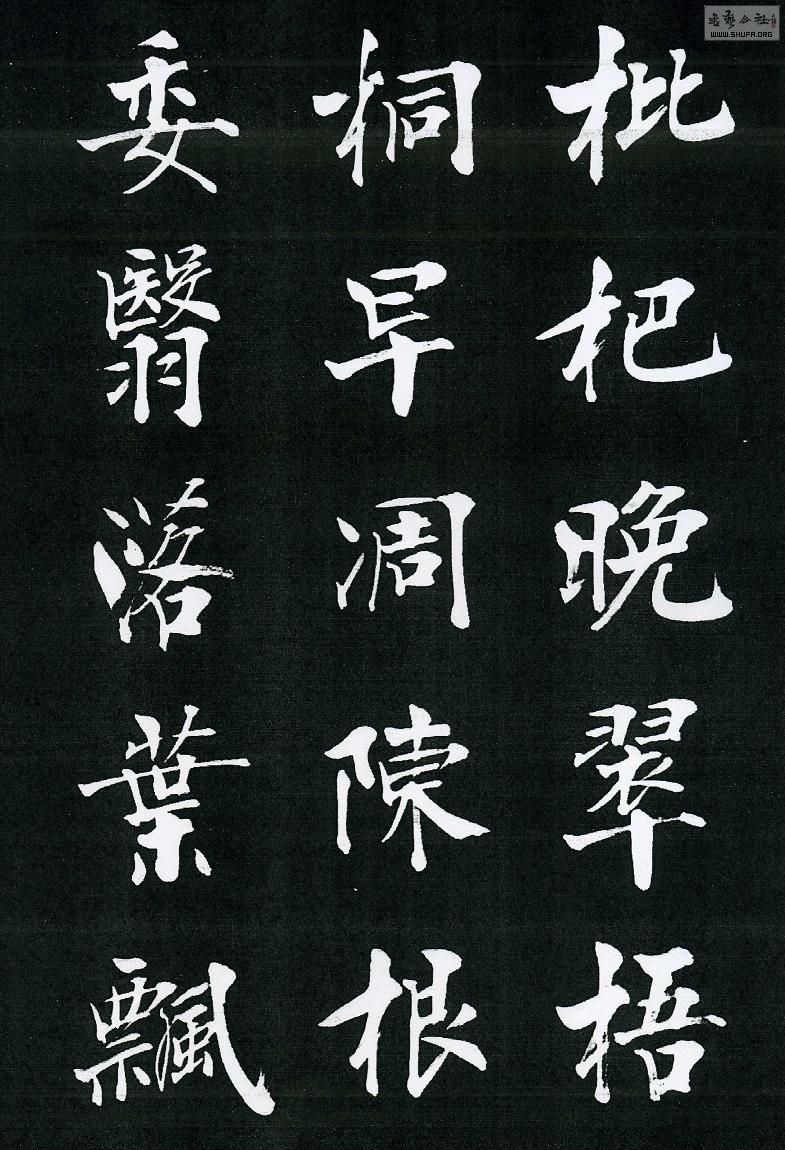 枇杷晚翠梧
桐早凋陳根
委翳落葉飄
WWW.SHUFA.ORG